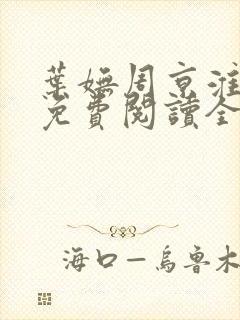 葉嫵周京淮
免費閱讀全
海口—烏魯木